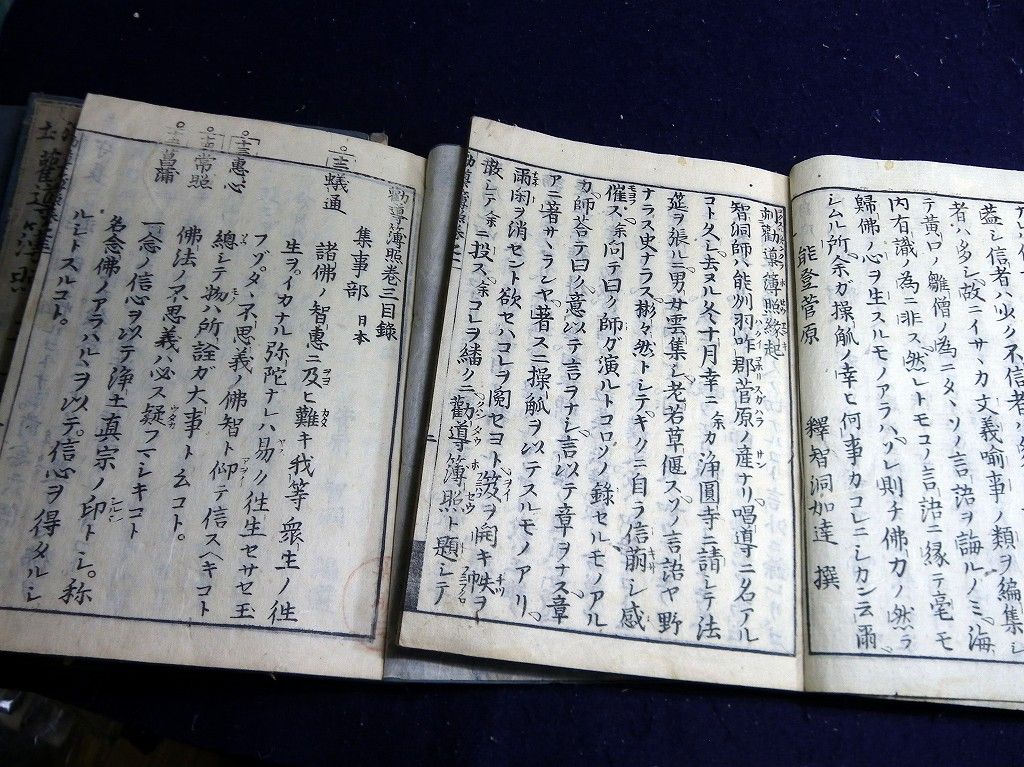 蓋シ信者ハ火ク不信者ハ
者ハ多シ故ニイサヽカ文義喩事ノ類ヲ編集シ
テ黄口ノ雛僧ノ為ニタヽソノ言語ヲ論ルノミ海
内有識ノ為ニ非ス然レトモコノ言語ニ縁テ毫モ
歸佛ノ心ヲ生スルモノアラハソレ則チ佛力ノ然ラ
シムル所余ガ操觚ノ幸ヒ何事カコレニシカン云爾
能登菅原 釋智洞如達 撰
勸導簿照縁起
智洞師ハ能州羽咋郡菅原ノ産ナリ唱導ニ名アル
コト久シ去ヌル冬十月幸ニ余カ浄圓寺ニ請シテ法
筵ヲ張ルニ男女雲集シ老若草偃スソノ言語ヤ野
ナラス史ナラス彬々然トシテキクノニ自ラ信萠シ感
催ス余向テ曰ク師ガ演ルトコロソノ錄セルモノアル
カ師荅テ曰ク意以テ言ヲナシ言以テ章ヲナス章
アニ著サヽランヤ著スニ操觚ヲ以テスルモノアリ
雨閑ヲ消セント欲セハコレヲ閲セヨト笈ヲ開キ帙ヲ
散シテ余ニ投ス余コレヲ繙クニ勸導簿照ト題シテ
勸導簿照巻三目録
集事部 日本
十二 蟻通
諸佛ノ智惠ニ及ヒ難キ我等衆生ノ徃
生ヲイカナル弥陀ナレハ易ク徃生セサセ玉
フゾタヽ不思義ノ佛智ト仰テ信スヘキコト
總シテ物ハ所詮ガ大事ト云コト。
佛法ノ不思義ハ必ス疑フマシキコト
十三 惠心
一念ノ信心ヲ以テ浄土真宗ノ印トシ。称
名念佛ノアラハルヽヲ以テ。信心ヲ得タルシ
ルシトスルコト。
十四 常照
十五 菖蒲